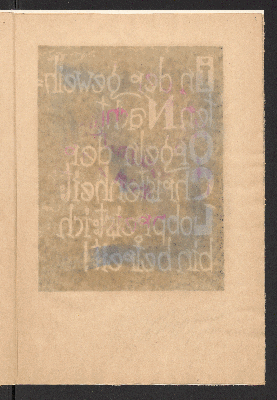 in der geweih=
ten Nacht
Orgeln der
Christenheit
Lobpreist ich
bin bereit!